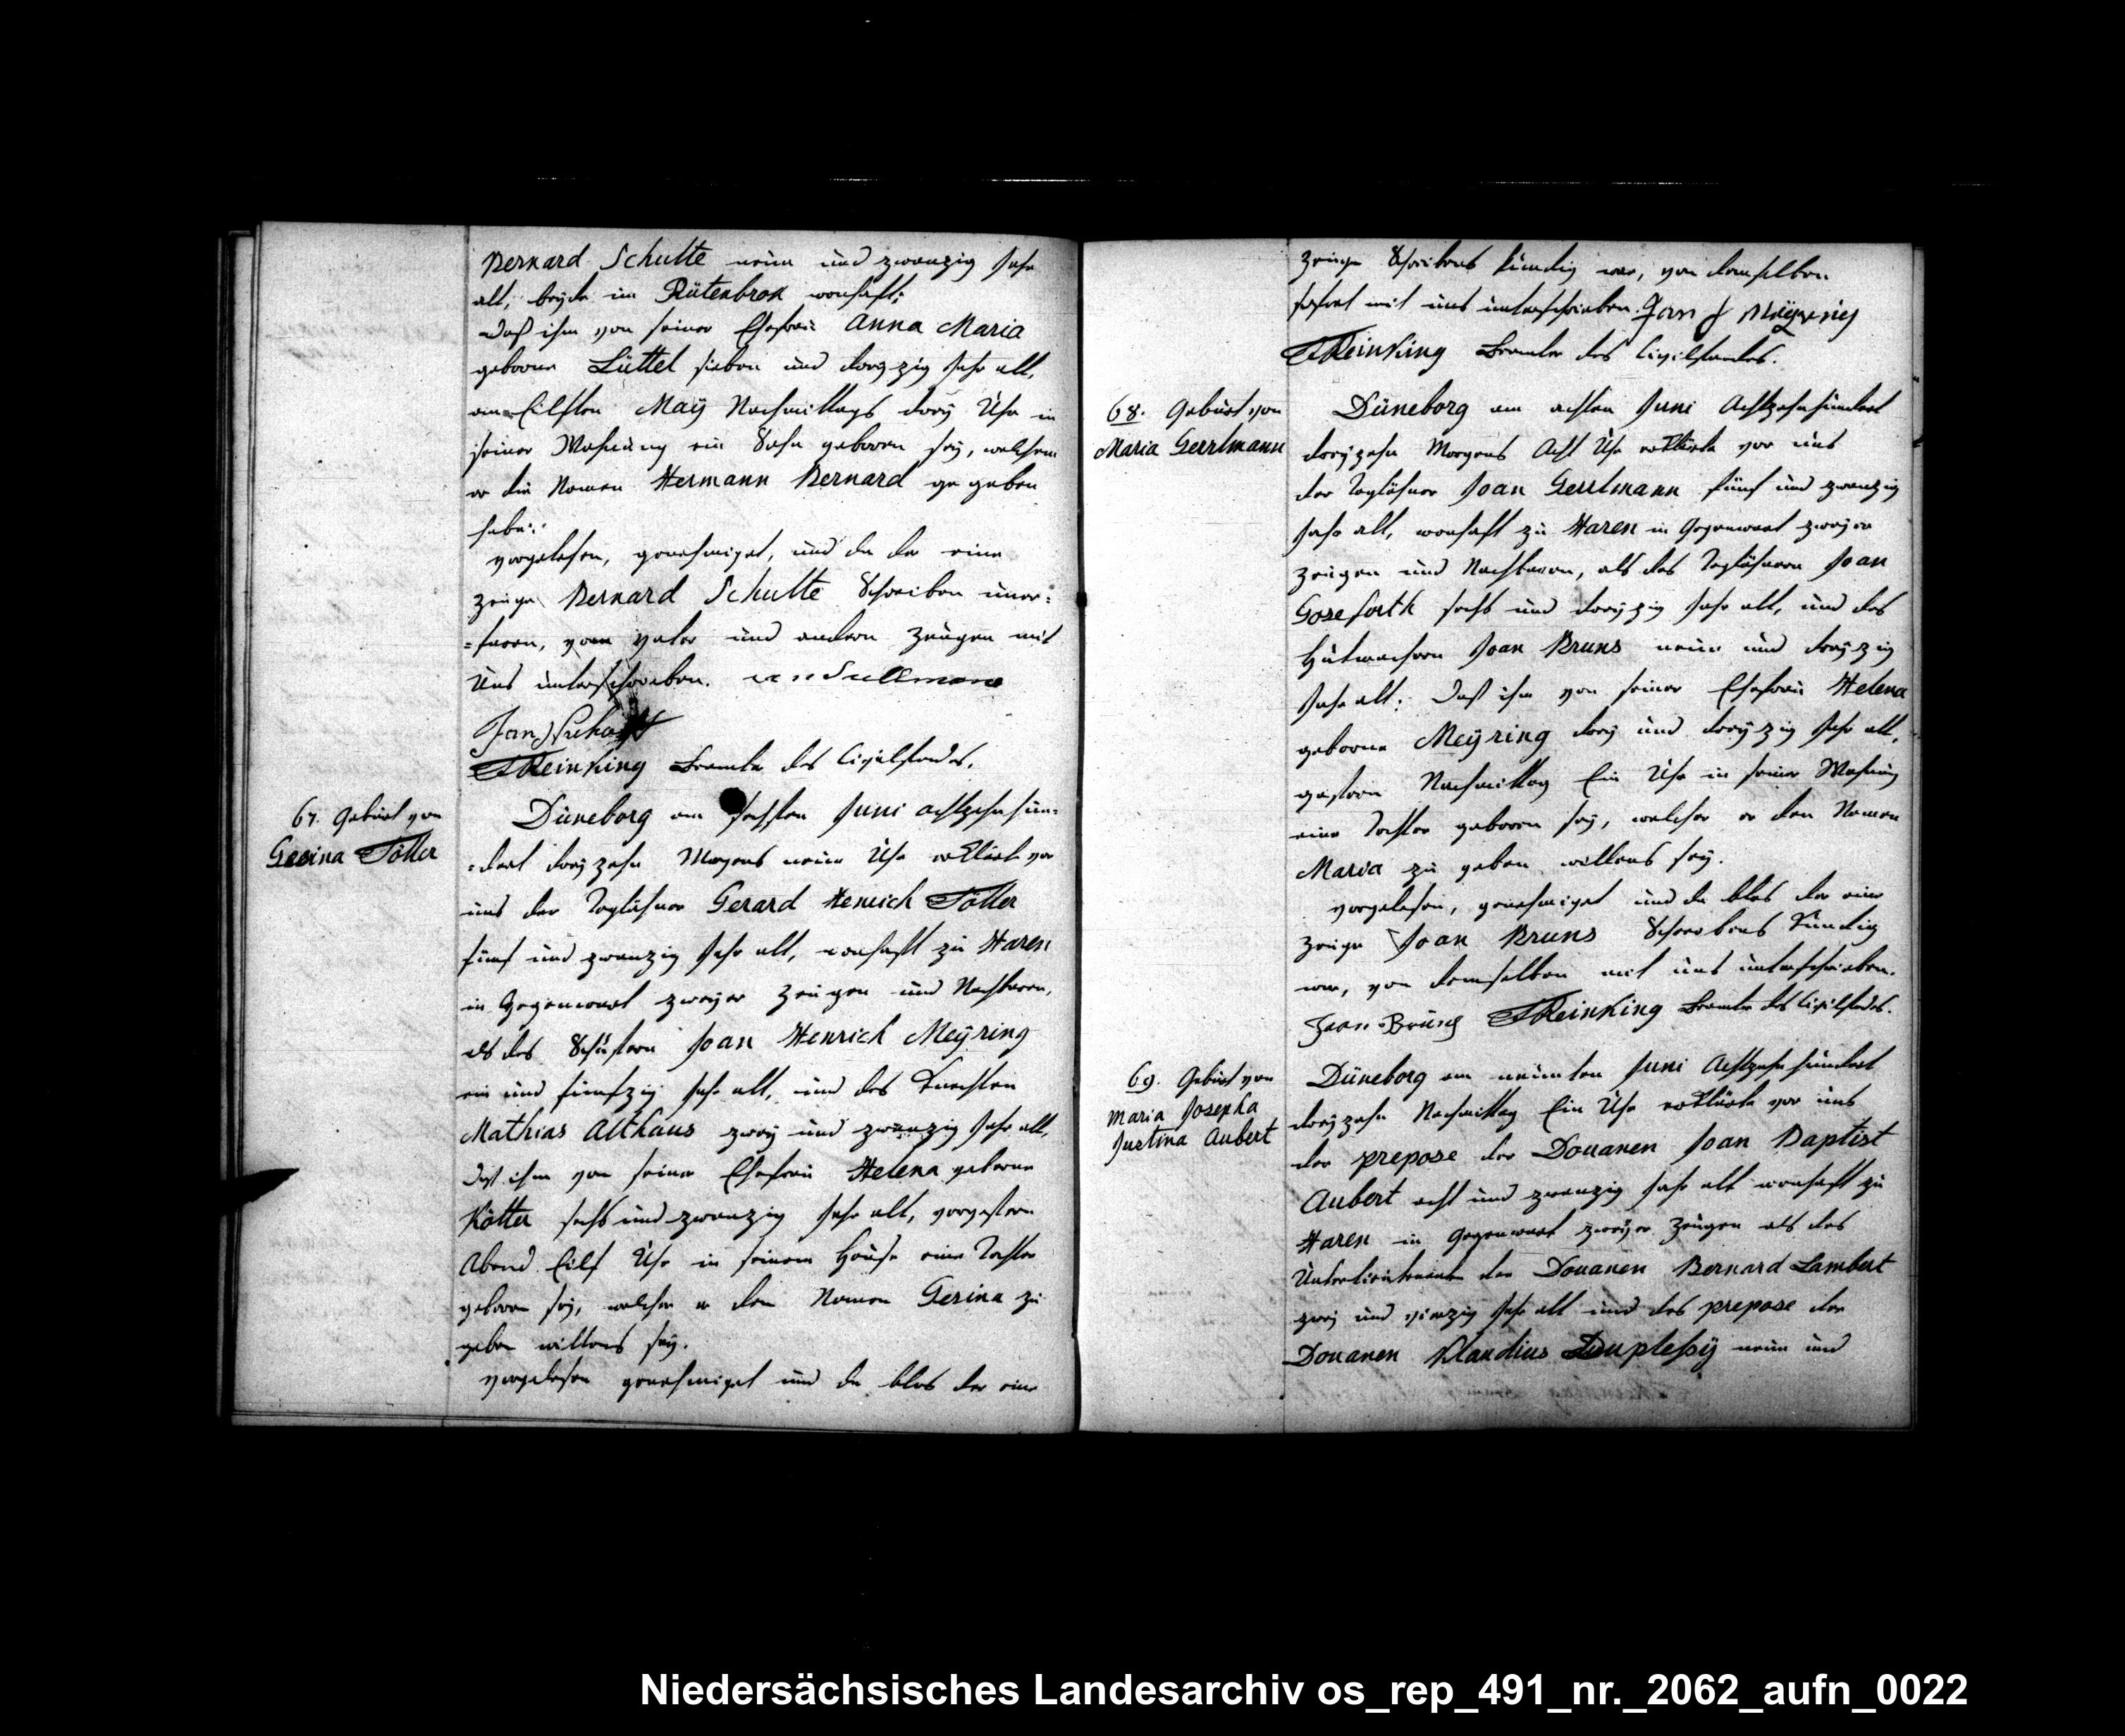 Bernard Schulte neun und zwanzig Jahr
alt, beyde im Rütenbrok wonhaft;
Daß ihm von seiner Ehefrau Anna Maria
geborne Lüttel sieben und dreyzig Jahr alt,
am Eilften Maÿ Nachmittags dreÿ Uhr in
seiner Wohnung ein Sohn geboren seÿ, welchem
er die Namen Hermann Bernard gegeben
habe:
vorgelesen, genehmiget, und da der eine
Zeuge Bernard Schulte Schreiben uner=
=faren, vom Vater und andern Zeugen mit
Uns unterschrieben.
Jan
Reinking Beamte des Civilstandes.
67. Geburt von
Gesina Töller
Düneborg am sechsten Juni achtzehnhun=
=dert dreyzehn Morgens neun Uhr erklärte vor
uns der Taglöhner Gerard Henrich Töller
fünf und zwanzig Jahr alt, wonhaft zu Haren
in Gegenwart zweyer Zeugen und Nachbaren,
als des Schustern Joan Henrich Meÿring
ein und fünfzig Jahr alt, und des Knechten
Mathias Althaus zweÿ und zwanzig Jahr alt,
Daß ihm von seiner Ehefrau Helena geborne
Kötter sechs und zwanzig Jahr alt, vorgestern
Abend Eilf Uhr in seinem Hause eine Tochter
geboren seÿ, welcher er den Namen Gesina zu
geben willens seÿ.
vorgelesen genehmiget und da blos der eine
Zeuge Schreibens kündig war, von demselben
sofort mit uns unterschrieben. Jan H Meÿering
Reinking Beamte des Civilstandes.
68. Geburt von
Maria Gerrlmann
Düneborg am achten Juni Achtzehnhundert
dreyzehn Morgens Acht Uhr erklärte vor uns
der Taglöhner Joan Gerrlmann fünf und zwanzig
Jahr alt, wonhaft zu Haren in Gegenwart zweyer
Zeugen und Nachbaren, als des Taglöhnern Joan
Goseforth sechs und dreyzig Jahr alt, und des
Hutmachern Joan Bruns neun und dreyzig
Jahr alt: Daß ihm von seiner Ehefrau Helena
geborne Meÿring dreÿ und dreÿzig Jahr alt,
gestern Nachmittag Ein Uhr in seiner Wohnung
eine Tochter geboren seÿ, welcher er den Namen
Maria zu geben willens seÿ.
vorgelesen, genehmiget und da blos der eine
Zeuge Joan Bruns Schreibens kündig
war, von demselben mit uns unterschrieben.
Joan Bruns Reinking Beamte des Civilstandes.
69. Geburt von
Maria Josepha
Justina Aubert
Düneborg am neunten Juni Achtzehnhundert
dreyzehn Nachmittag Ein Uhr erklärte vor uns
der prepose der Douanen Joan Baptist
Aubert acht und zwanzig Jahr alt wonhaft zu
Haren in Gegenwart zweÿer Zeugen als des
Unterlieutenants der Douanen Bernard Lambert
zweÿ und vierzig Jahr alt und des prepose der
Douanen Klaudius Duplessÿ neun und
Niedersächsisches Landesarchiv os_rep_491_nr._2062_aufn_0022